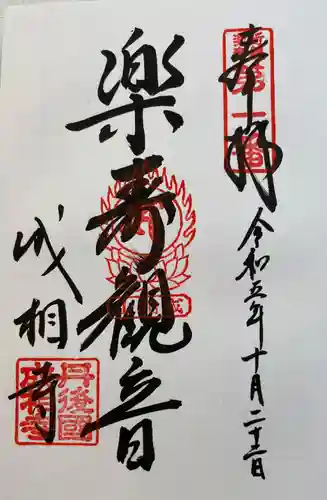 奉拝
令和五年十月二十二日
楽寿観音
成相寺
丹後國
成相寺